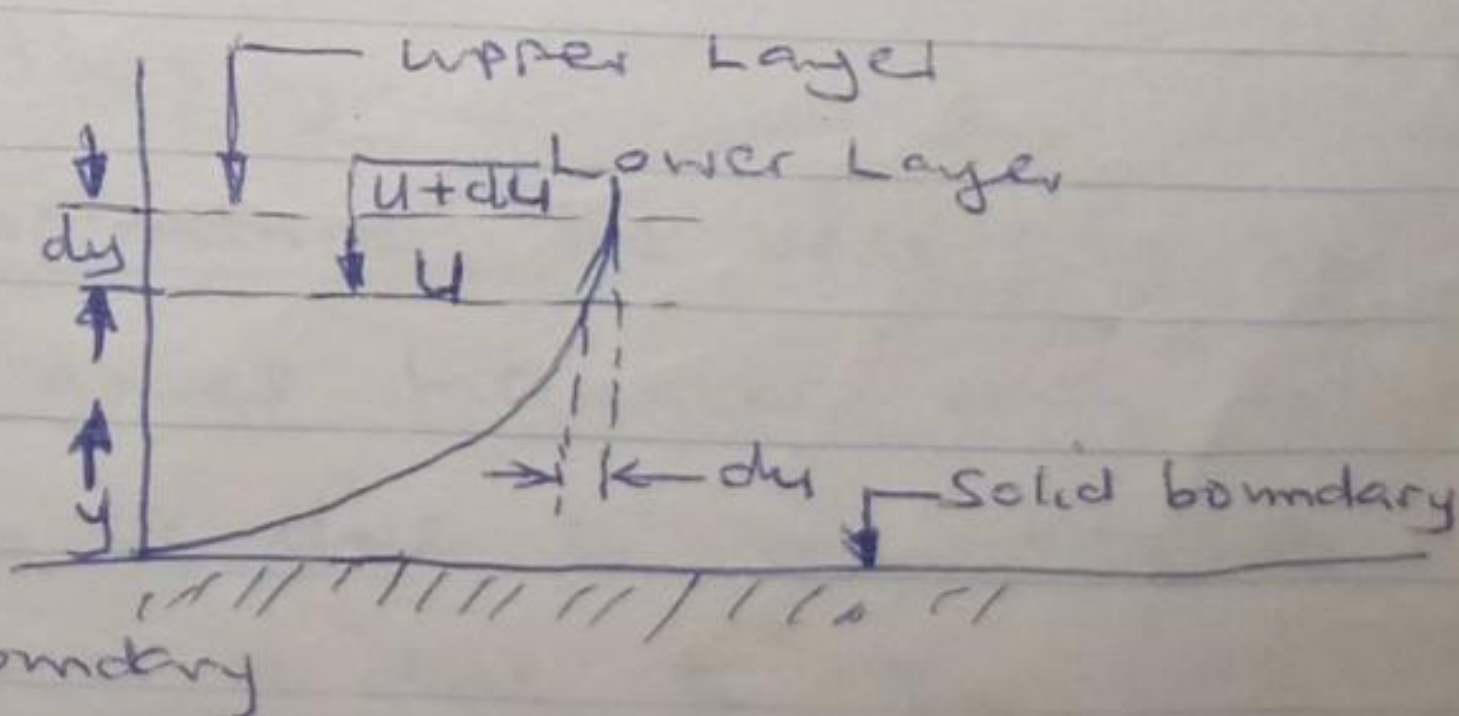 upper Layer
Lower Layer
u+du
dy
u
du
Solid boundary
y
oundary